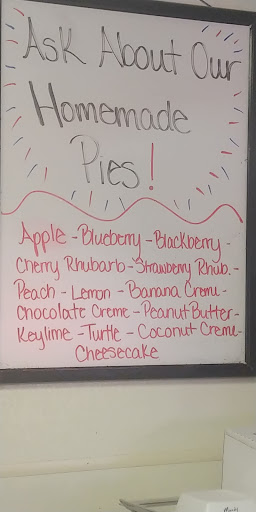 Ask About Our
Homemade
Pies!
Apple - Blueberry - Blackberry -
Cherry Rhubarb - Strawberry Rhub. -
Peach - Lemon - Banana Creme -
Chocolate Creme - Peanut Butter -
Keylime - Turtle - Coconut Creme -
Cheesecake